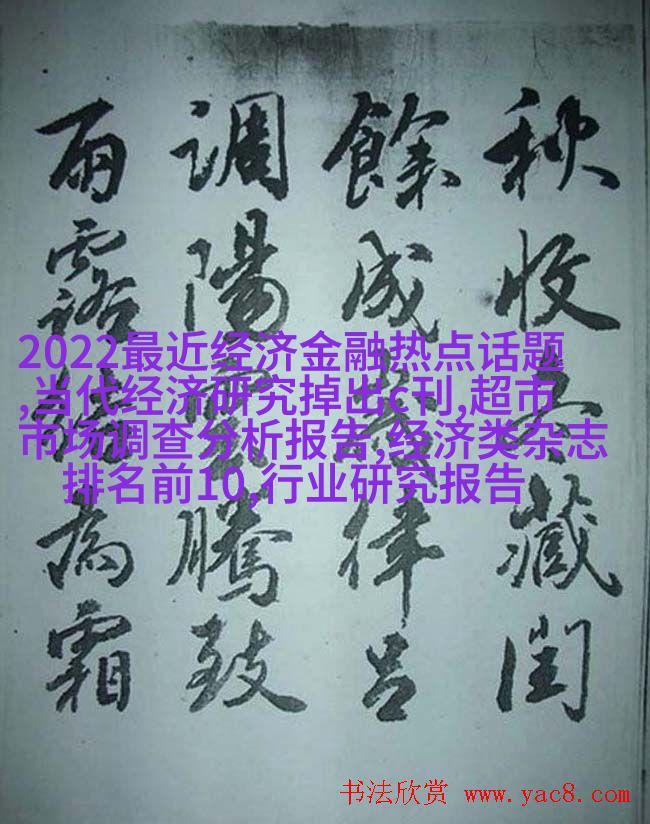 秋收冬藏閏
餘成歲律呂
調陽雲騰致
雨露結為霜
2022最近经济金融热点话题
,当代经济研究掉出c刊,超市
市场调查分析报告,经济类杂志
排名前10,行业研究报告
书法欣赏 www.yac8.com